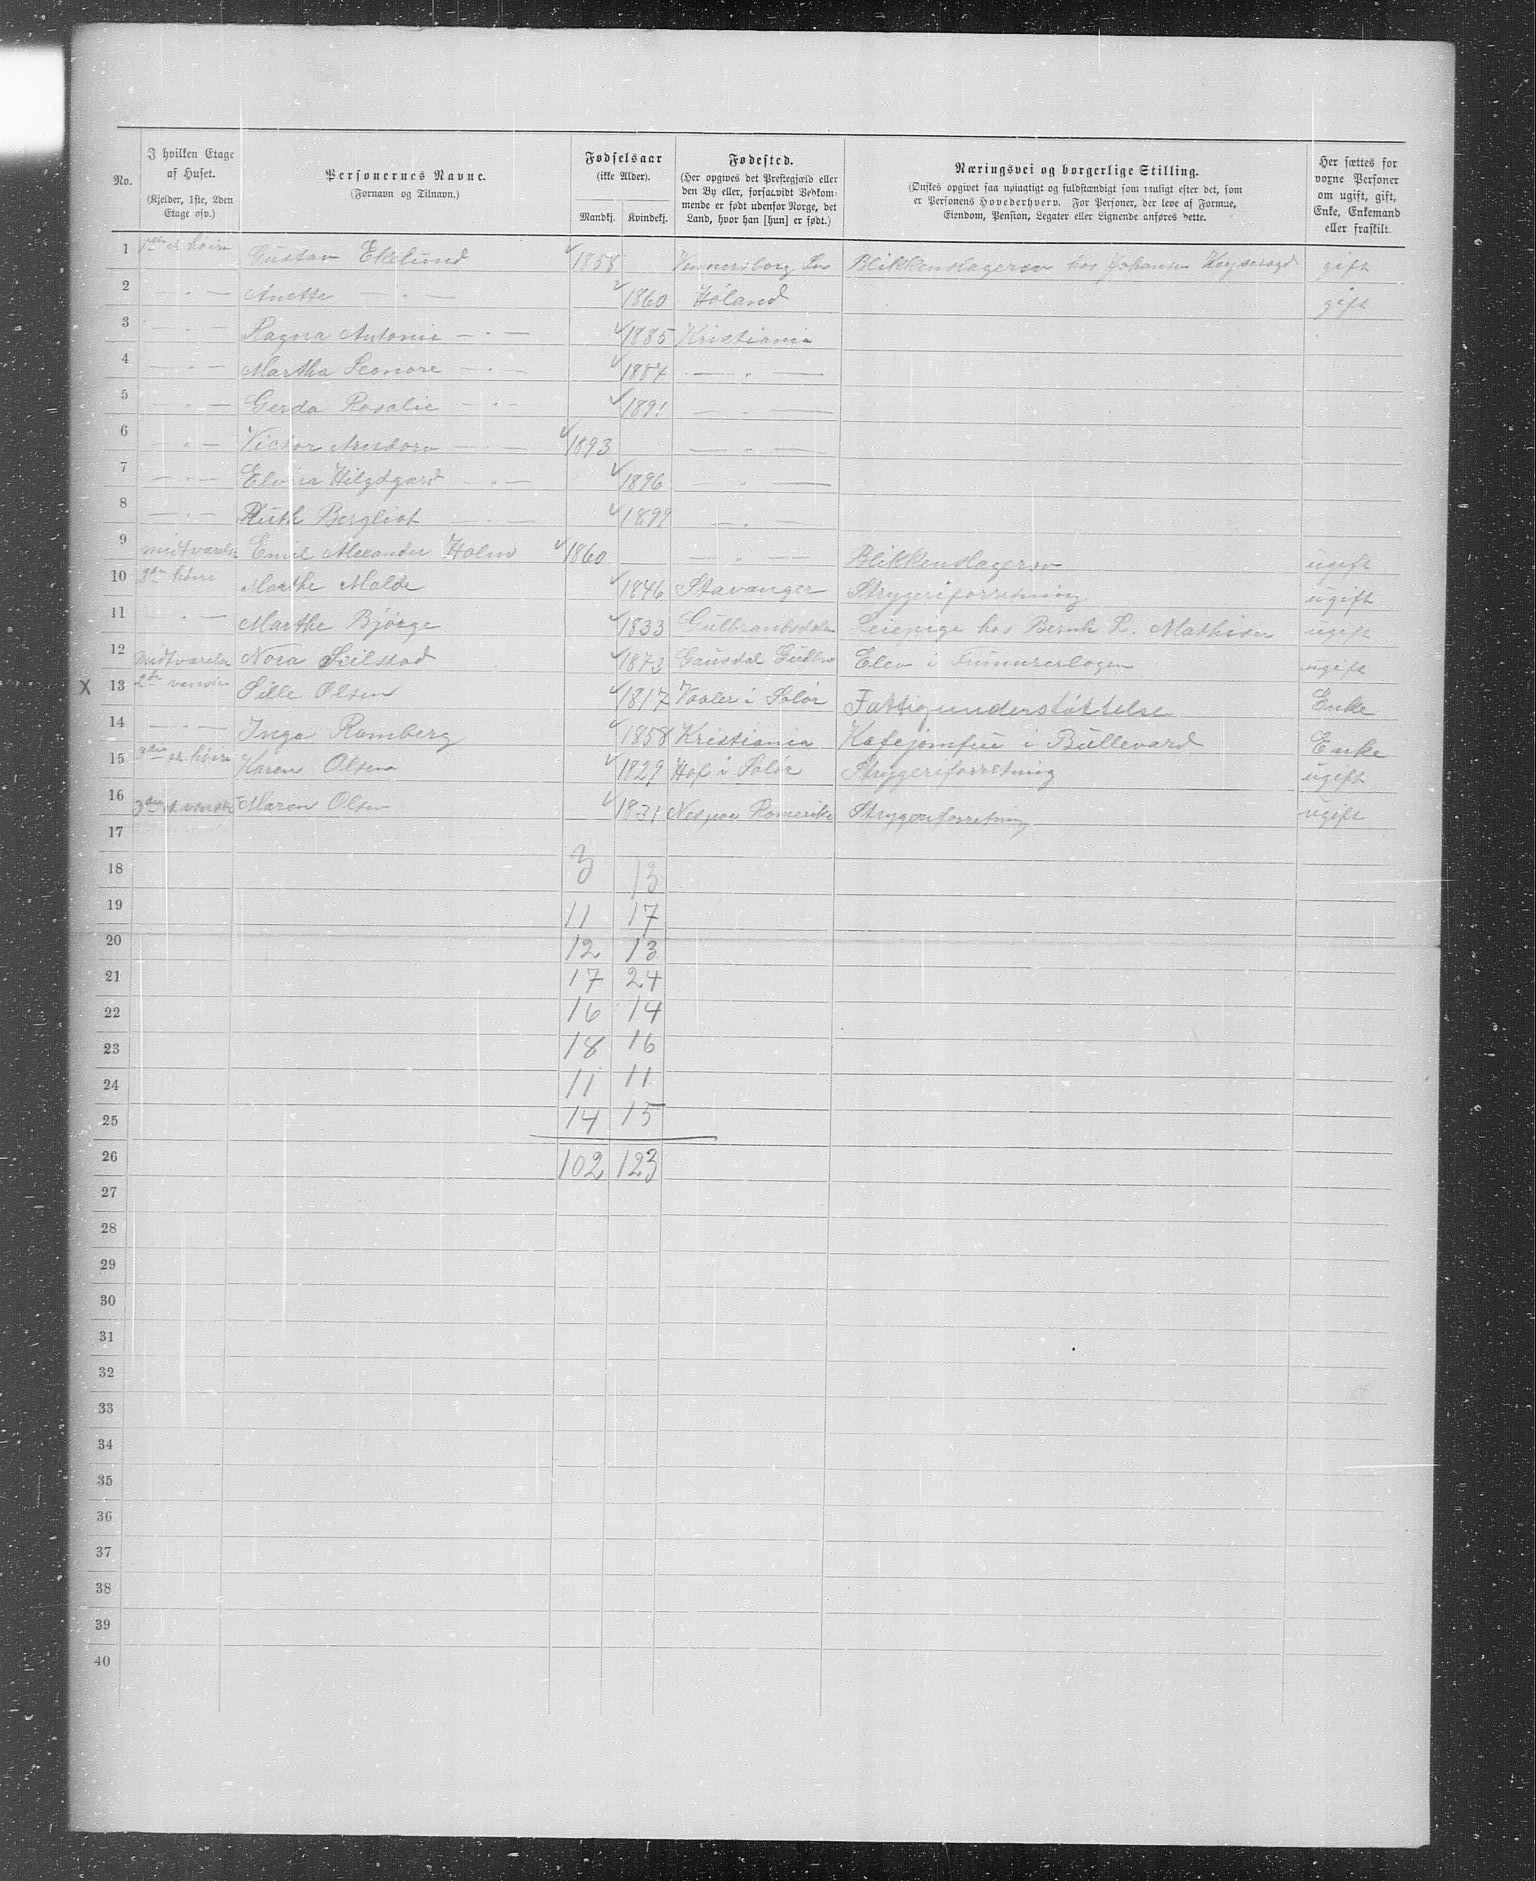 No.
I hvilken Etage af Huset. (Kjelder, 1ste, 2den Etage osv.)
Personernes Navne. (Fornavn og Tilnavn.)
Fødselsaar (ikke Alder). Mandkj. Kvindekj.
Fødested. (Her opgives det Prestegjæld eller den By eller, forsaavidt Vedkommende er født udenfor Norge, det Land, hvor han [hun] er født.)
Næringsvei og borgerlige Stilling. (Ønskes opgivet saa nøiagtigt og fuldstændigt som muligt efter det, som er Personens Hovederhverv. For Personer, der leve af Formue, Eiendom, Pension, Legater eller Lignende anføres dette.
Her sættes for voxne Personer om ugift, gift, Enke, Enkemand eller fraskilt.
1 Gustav Ekelund 1858 Blikkenslagersv hos Johansen gift
2 — " — Anette — " — 1860 Høland gift
3 — " — Ragna Antonie — " — 1885 Kristiania
4 — " — Martha Leonore — " — 1887 — " —
5 — " — Gerda Rosalie — " — 1891 — " —
6 — " — Victor — " — 1893 — " —
7 — " — Elvira Hilgdgard — " — 1896 — " —
8 — " — Ruth Bergliot — " — 1899 — " —
9 midtværelse Emil Alexander Holm 1860 — " — Blikkenslagersv ugift
10 3die høire Marthe Malde 1846 Stavanger Strygeriforretning ugift
11 — " — Marthe Bjørge 1833 Gulbrandsdalen Leiepige hos Bernh L. Mathisen ugift
12 Midtværelse Nora 1873 Gausdal Elev i ugift
X 13 2den venstre Sille Olsen 1817 Vaaler i Solør Fattigunderstøttelse Enke
14 — " — Inga Ramberg 1858 Kristiania Kafejomfru i Bullevard Enke
15 3die høire Karen Olsen 1829 Hof i Solør Strygeriforretning ugift
16 3die venstre Maren Olsen 1831 Romerike Strygeriforretning ugift
17
18 3 13
19 11 17
20 12 13
21 17 24
22 16 14
23 18 16
24 11 11
25 14 15
26 102 123
27
28
29
30
31
32
33
34
35
36
37
38
39
40